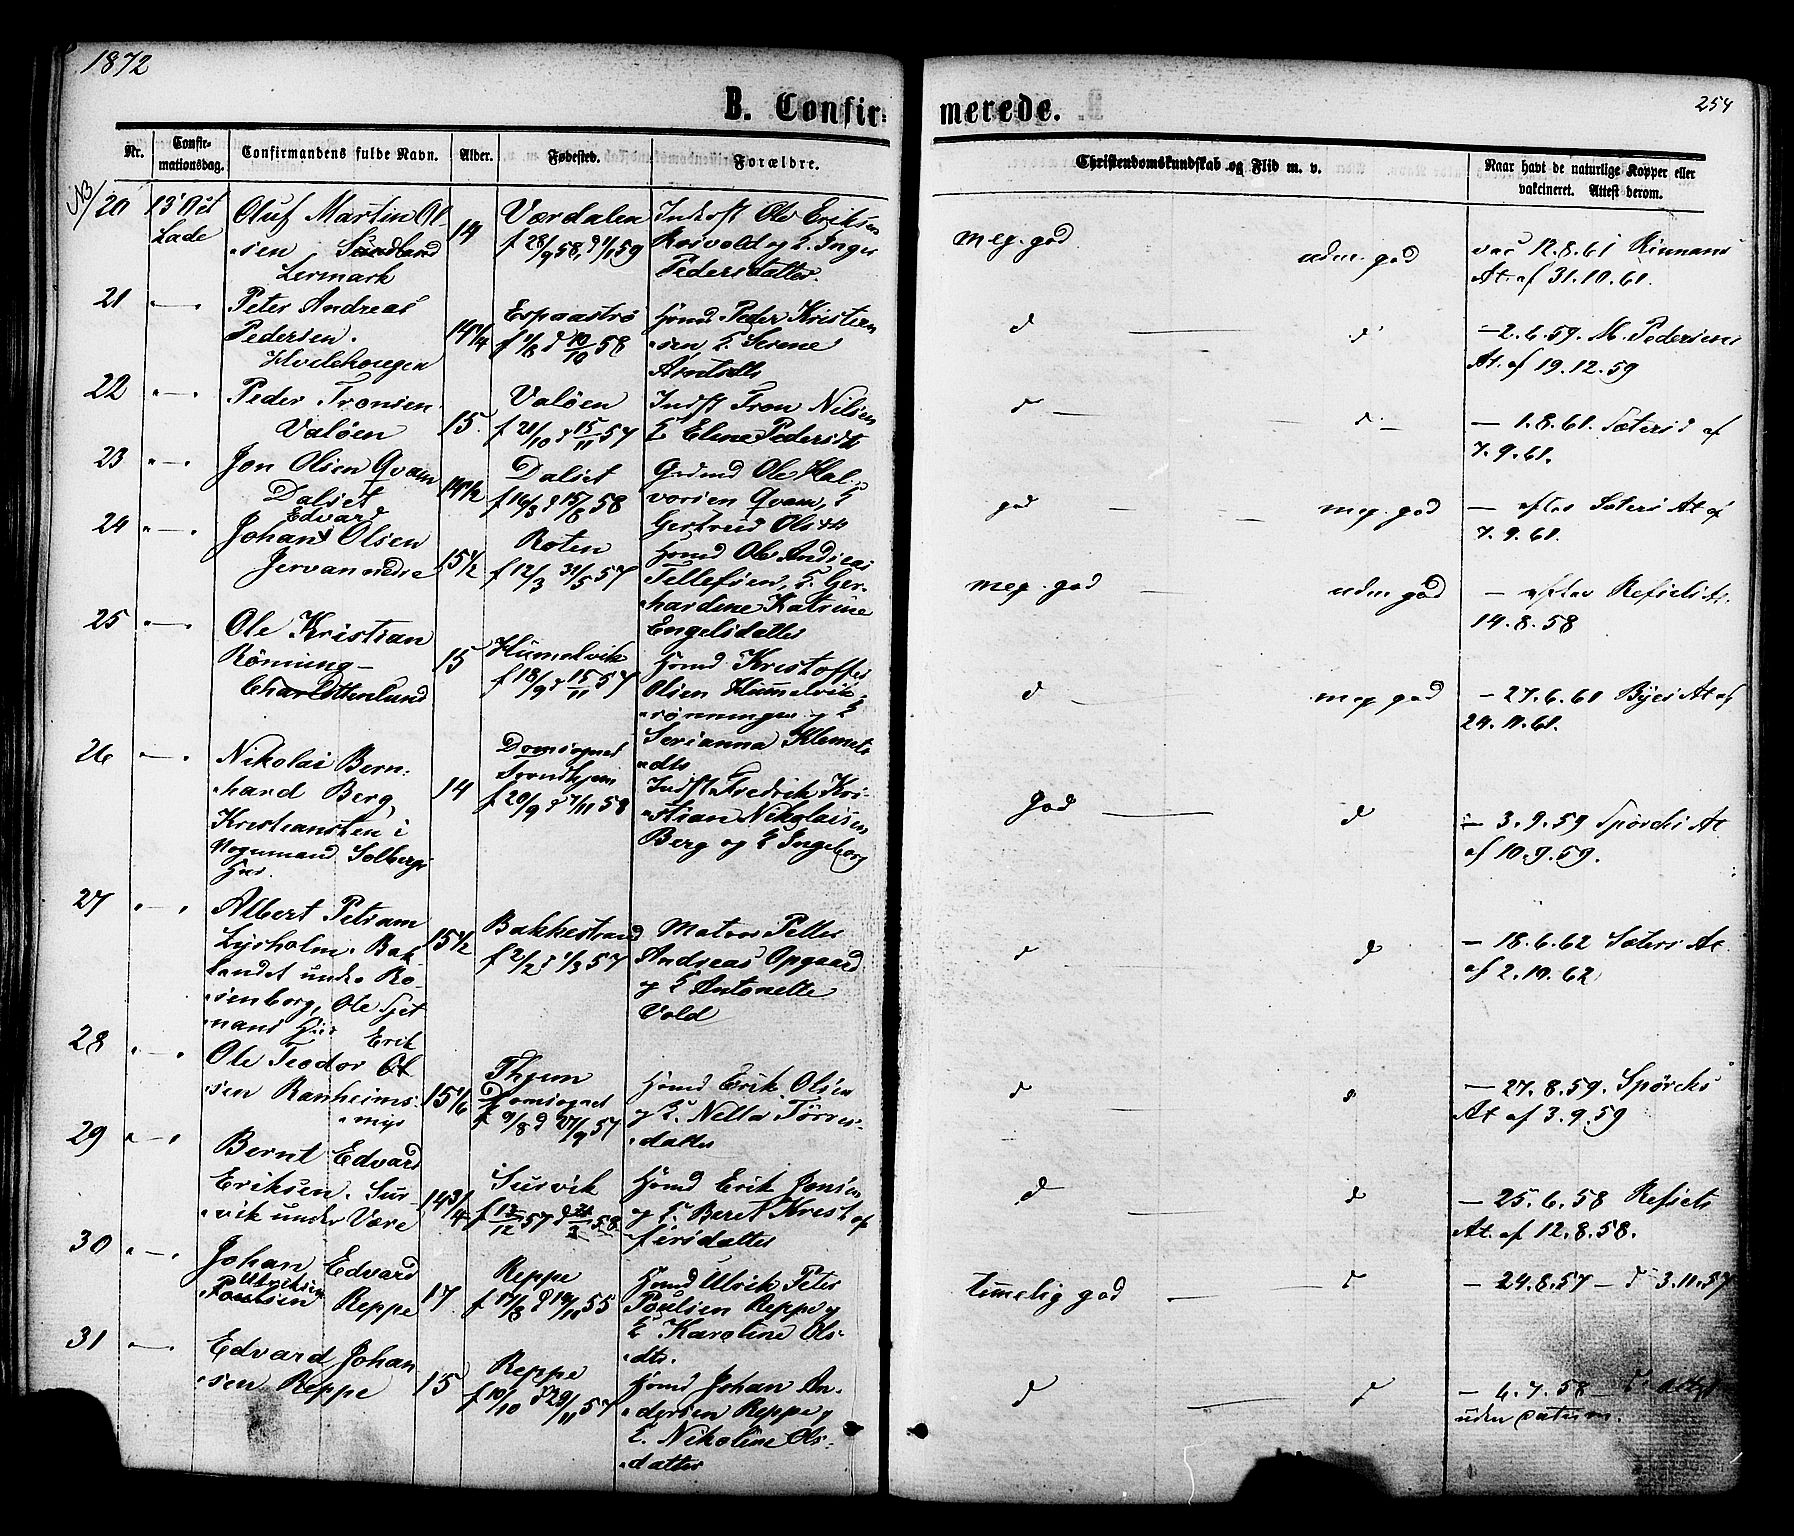 1872
254
B. Confirmerede.
Nr. Confirmationsdag. Confirmandens fulde Navn. Alder. Fødested. Forældre. Christendomskundskab og Flid m. v. Naar havt de naturlige Kopper eller vakcineret. Attest derom.
20 13 Oct Lade
Oluf Martin Ol-
sen
Lermark
14
Værdalen
f 28/9 58,
Indst Ole Eriksen
Rosvold og H. Inger
Pedersdatter.
meg. god udm. god
vac 12.8.61 Rinnans
At. af 31.10.61.
21 " — "
Peter Andreas
Pedersen.
Hvilehougen
14 1/4
Espaastrø
Hsmd Peder Kristian
sen H. Serene
Arntsdtr
d — d
— 2.6.59. M. Pedersens
At. af 19.12.59
22 " — "
Peder Tronsen
Valøen
15.
Valøen
f 21/10 d 15/11 57
Indst Tron Nilsen
H Elene Pedersdtr
d — d —
— 1.8.61. Sæters d af
7.9.61.
23 " — "
Jon Olsen Qvam
Dalset
14 1/2
Dalset
f 16/3 d 15/8 58
Grdmd Ole Hal-
vorsen Qvam, H
Gertrud Olsdtr
god — meg. god
— efter Sæters At af
7.9.61.
24 " — "
Edvard
Johan Olsen
Jervan nedre
15 1/2
Roten
f 12/3 31/5 57
Hsmd Ole Andreas
Tellefsen, H. Ger-
hardine Katrine
Engelsdatter
meg. god — udm god
— efter Refsets At.
14.8.58
25 " — "
Ole Kristian
Rønning
Charlottenlund
15
Hummelvik
f 18/9 d 15/11 57
Hsmd Kristoffer
Olsen Hummelvik-
rønningen og H
Serianna Klemets
dtr
d — meg god
— 27.6.61 Byes At af
24.11.61.
26 " — "
Nikolai Bern-
hard Berg
Kristiansten i
Vognmand Solbergs
Hus.
14
Domsognet
Trondhjem
f 20/9 d 7/11 58
Indst Fredrik Kri-
stian Nikolaisen
Berg og H Ingeborg
God — d
— 3.9.59 Spørcks At
af 10.9.59.
27 " — "
Albert Petram
Lysholm. Bak-
landet under Ro-
senborg, Ole
Hus
15 1/2
Bakkestrand
f 2/2 d 1/3 57
Matros Petter
Andreas Opgaard
og H Antonette
Vold
d — d
— 18.6.62 Sæters At
af 2.10.62
28 " — "
Erik
Ole Teodor Ol
sen Ranheims-
myr
15 1/6
Thjem
Domsognet
f 9/8 d 27/9 57
Hsmd Erik Olsen
og H. Nella Tørres-
datter
d — d
— 27.8.59. Spørcks
At af 3.9.59
29 " — "
Bernt Edvard
Eriksen. Sur-
vik under Være
14 3/4
Survik
f 13/12 57
Hsmd Erik Jonsen
og H. Beret Kristof
fersdatter
d — d
— 25.6.58 Refsets
At. af 12.8.58.
30 " — "
Johan Edvard
Ulriksen
Poulsen Reppe
17.
Reppe
Hsmd Ulrik Peter
Poulsen Reppe og
H Karoline Ols-
dtr.
temelig god — d
— 24.8.57 — d 3.11.57
31 " — "
Edvard Johan
sen Reppe
15
Reppe
f 10/10 d 29/11 57
Hsmd Johan An-
dersen Reppe og
H. Nikoline Ols-
datter
d — d
— 6.7.58 — d
uden datum.